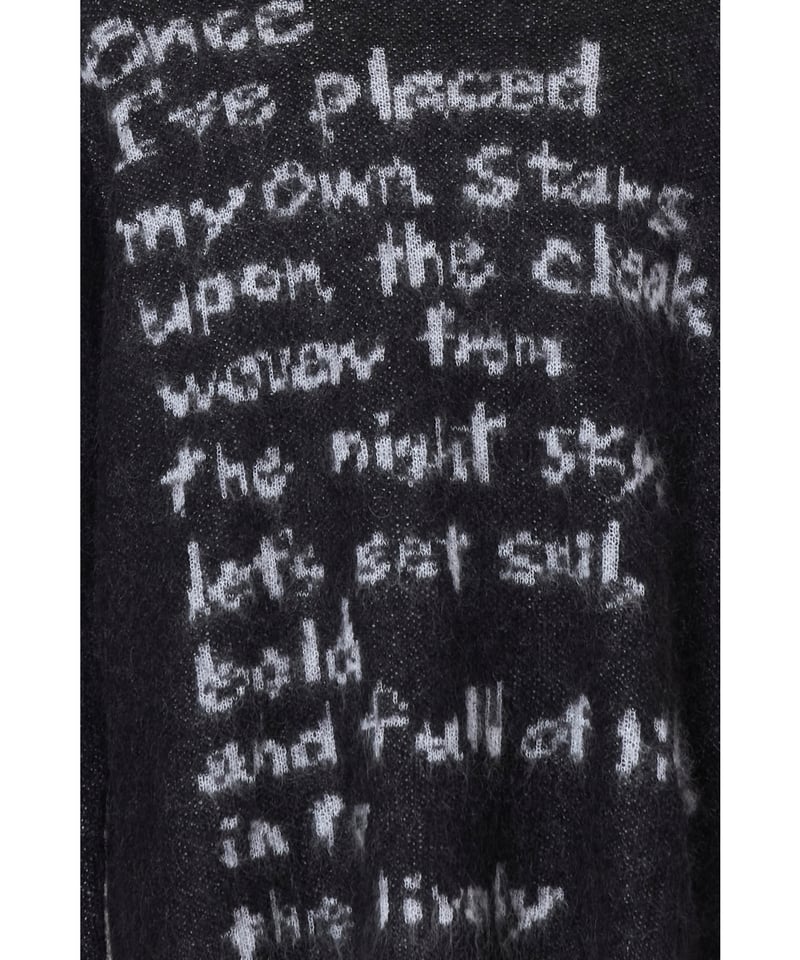 Once
I've placed
my own stars
upon the cloak
woven from
the night sky,
let's set sail,
bold
and full of
in
the lively